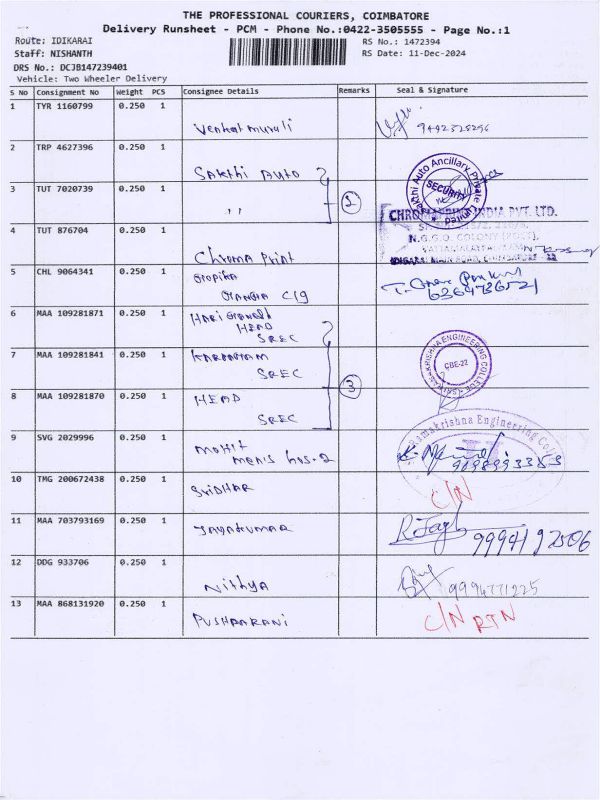 THE PROFESSIONAL COURIERS, COIMBATORE
Delivery Runsheet - PCM - Phone No.:0422-3505555 - Page No.:1
Route: IDIKARAI
Staff: NISHANTH
DRS No.: DCJB147239401
Vehicle: Two Wheeler Delivery
RS No.: 1472394
RS Date: 11-Dec-2024
S No Consignment No Weight PCS Consignee Details Remarks Seal & Signature
1 TYR 1160799 0.250 1
Venkat murali
2 TRP 4627396 0.250 1
Sakthi Auto
Sakthi Auto Ancillary Private Limited
SECURITY
3 TUT 7020739 0.250 1
,, 2
4 TUT 876704 0.250 1
Chroma Print
INDIA PVT. LTD.
5 CHL 9064341 0.250 1
Gopika
6369736521
6 MAA 109281871 0.250 1
HEAD
SREC
7 MAA 109281841 0.250 1
SREC
ENGINEERING COLLEGE
CBE-22
8 MAA 109281870 0.250 1
HEAD
SREC
3
Ramakrishna Engineering
9 SVG 2029996 0.250 1
Mohit
men's hos-2
10 TMG 200672438 0.250 1
SRIDHAR
C/N
11 MAA 703793169 0.250 1
Jayakumar
12 DDG 933706 0.250 1
Nithya
9994771225
13 MAA 868131920 0.250 1
PUSHPARANI
C/N RTN